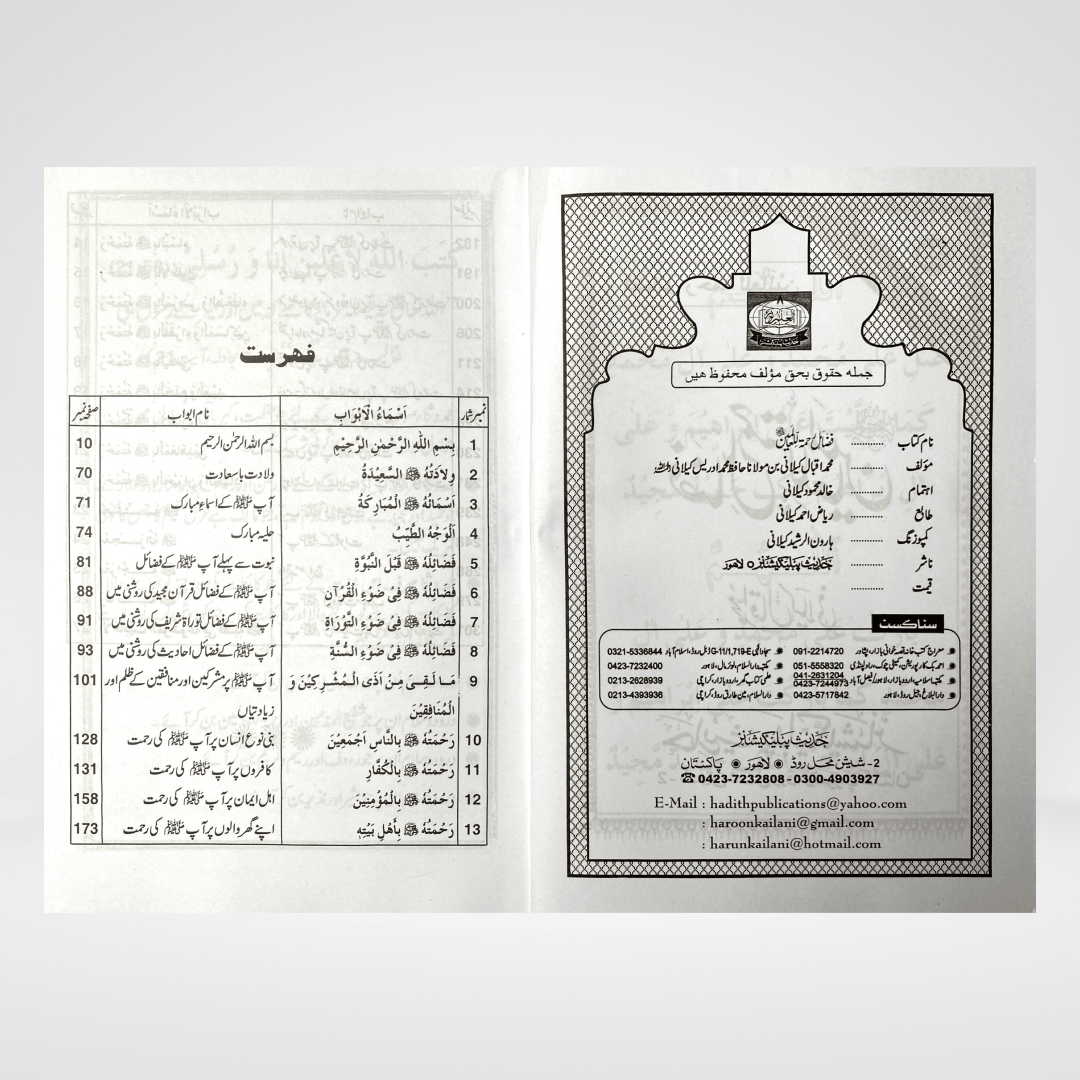 جملہ حقوق بحق مؤلف محفوظ ھیں
نام کتاب ............ فضائل رحمۃ للعالمین ﷺ
مؤلف ............ محمد اقبال کیلانی بن مولانا حافظ محمد ادریس کیلانی
اہتمام ............ خالد محمود کیلانی
طابع ............ ریاض احمد کیلانی
کمپوزنگ ............ ہارون الرشید کیلانی
ناشر ............ حدیث پبلیکیشنز، لاہور
قیمت ............
سٹاکسٹ
معراج کتب خانہ قصہ خوانی بازار، پشاور 091-2214720
احمد بک کارپوریشن، کمیٹی چوک، راولپنڈی 051-5558320
مکتبہ اسلامیہ، اردو بازار، لاہور/فیصل آباد 041-2631204 0423-7244973
دارالبلاغ، جیل روڈ، لاہور 0423-5717842
G-11/1, 719-E ڈبل روڈ، اسلام آباد 0321-5336844
مکتبہ دارالسلام، لوئر مال، لاہور 0423-7232400
علمی کتاب گھر، اردو بازار، کراچی 0213-2628939
دارالسلام، مین طارق روڈ، کراچی 0213-4393936
حدیث پبلیکیشنز
2- شیش محل روڈ ◉ لاھور ◉ پاکستان
☎ 0423-7232808 - 0300-4903927
E-Mail : hadithpublications@yahoo.com
: haroonkailani@gmail.com
: harunkailani@hotmail.com
فہرست
نمبر شمار اَسْمَاءُ الْاَبْوَابِ نام ابواب صفحہ نمبر
1 بِسْمِ اللّٰهِ الرَّحْمٰنِ الرَّحِيْمِ بسم اللہ الرحمٰن الرحیم 10
2 وِلَادَتُهُ ﷺ السَّعِيْدَةُ ولادت باسعادت 70
3 اَسْمَائُهُ ﷺ الْمُبَارَكَةُ آپ ﷺ کے اسماء مبارک 71
4 اَلْوَجْهُ الطَّيِّبُ حلیہ مبارک 74
5 فَضَائِلُهُ ﷺ قَبْلَ النُّبُوَّةِ نبوت سے پہلے آپ ﷺ کے فضائل 81
6 فَضَائِلُهُ ﷺ فِىْ ضَوْءِ الْقُرْآنِ آپ ﷺ کے فضائل قرآن مجید کی روشنی میں 88
7 فَضَائِلُهُ ﷺ فِىْ ضَوْءِ التَّوْرَاةِ آپ ﷺ کے فضائل توراۃ شریف کی روشنی میں 91
8 فَضَائِلُهُ ﷺ فِىْ ضَوْءِ السُّنَّةِ آپ ﷺ کے فضائل احادیث کی روشنی میں 93
9 مَا لَقِىَ مِنْ اَذَى الْمُشْرِكِيْنَ وَ آپ ﷺ پر مشرکین اور منافقین کے ظلم اور 101
الْمُنَافِقِيْنَ زیادتیاں
10 رَحْمَتُهُ ﷺ بِالنَّاسِ اَجْمَعِيْنَ بنی نوع انسان پر آپ ﷺ کی رحمت 128
11 رَحْمَتُهُ ﷺ بِالْكُفَّارِ کافروں پر آپ ﷺ کی رحمت 131
12 رَحْمَتُهُ ﷺ بِالْمُؤْمِنِيْنَ اہل ایمان پر آپ ﷺ کی رحمت 158
13 رَحْمَتُهُ ﷺ بِأَهْلِ بَيْتِهٖ اپنے گھر والوں پر آپ ﷺ کی رحمت 173